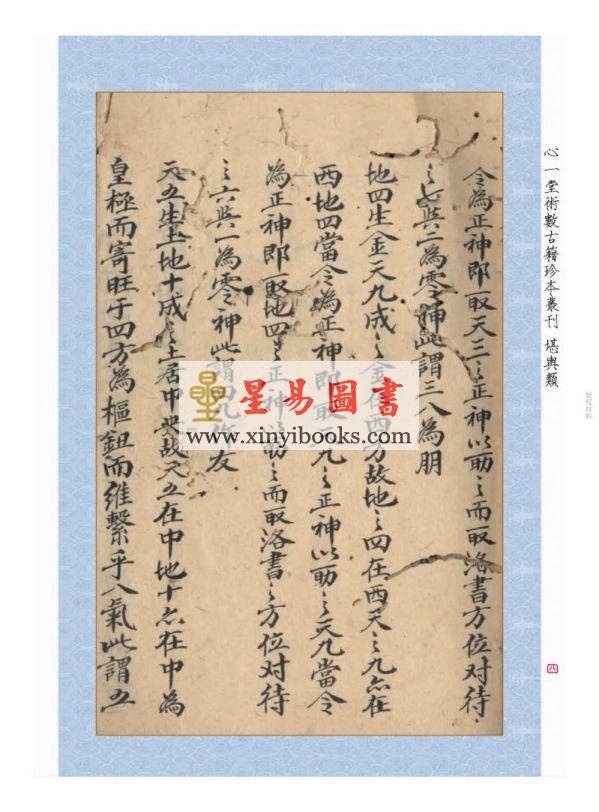 心一堂術數古籍珍本叢刊 堪輿類
四
令為正神即取天三之正神以助之而取洛書方位对待
之七與二為零神此謂三八為朋
地四生金天九成之金在西方故地之四在西天之九亦在
西地四當令為正神即取天九之正神以助之天九當令
為正神即取地四之正神以助之而取洛書之方位对待
之六與一為零神此謂四九作友
天五生土地十成之土居中央故天五在中地十亦在中為
皇極而寄旺于四方為樞鈕而維繫乎八氣此謂五
星易圖書
www.xinyibooks.com